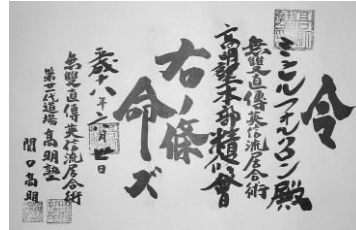 令
ミシェルフォルタン殿
無雙直傳英信流居合術
高明塾本部稽古會
右ノ條
命ズ
平成十八年二月廿日
無雙直傳英信流居合術
第廿一代道場髙明塾
関口高明